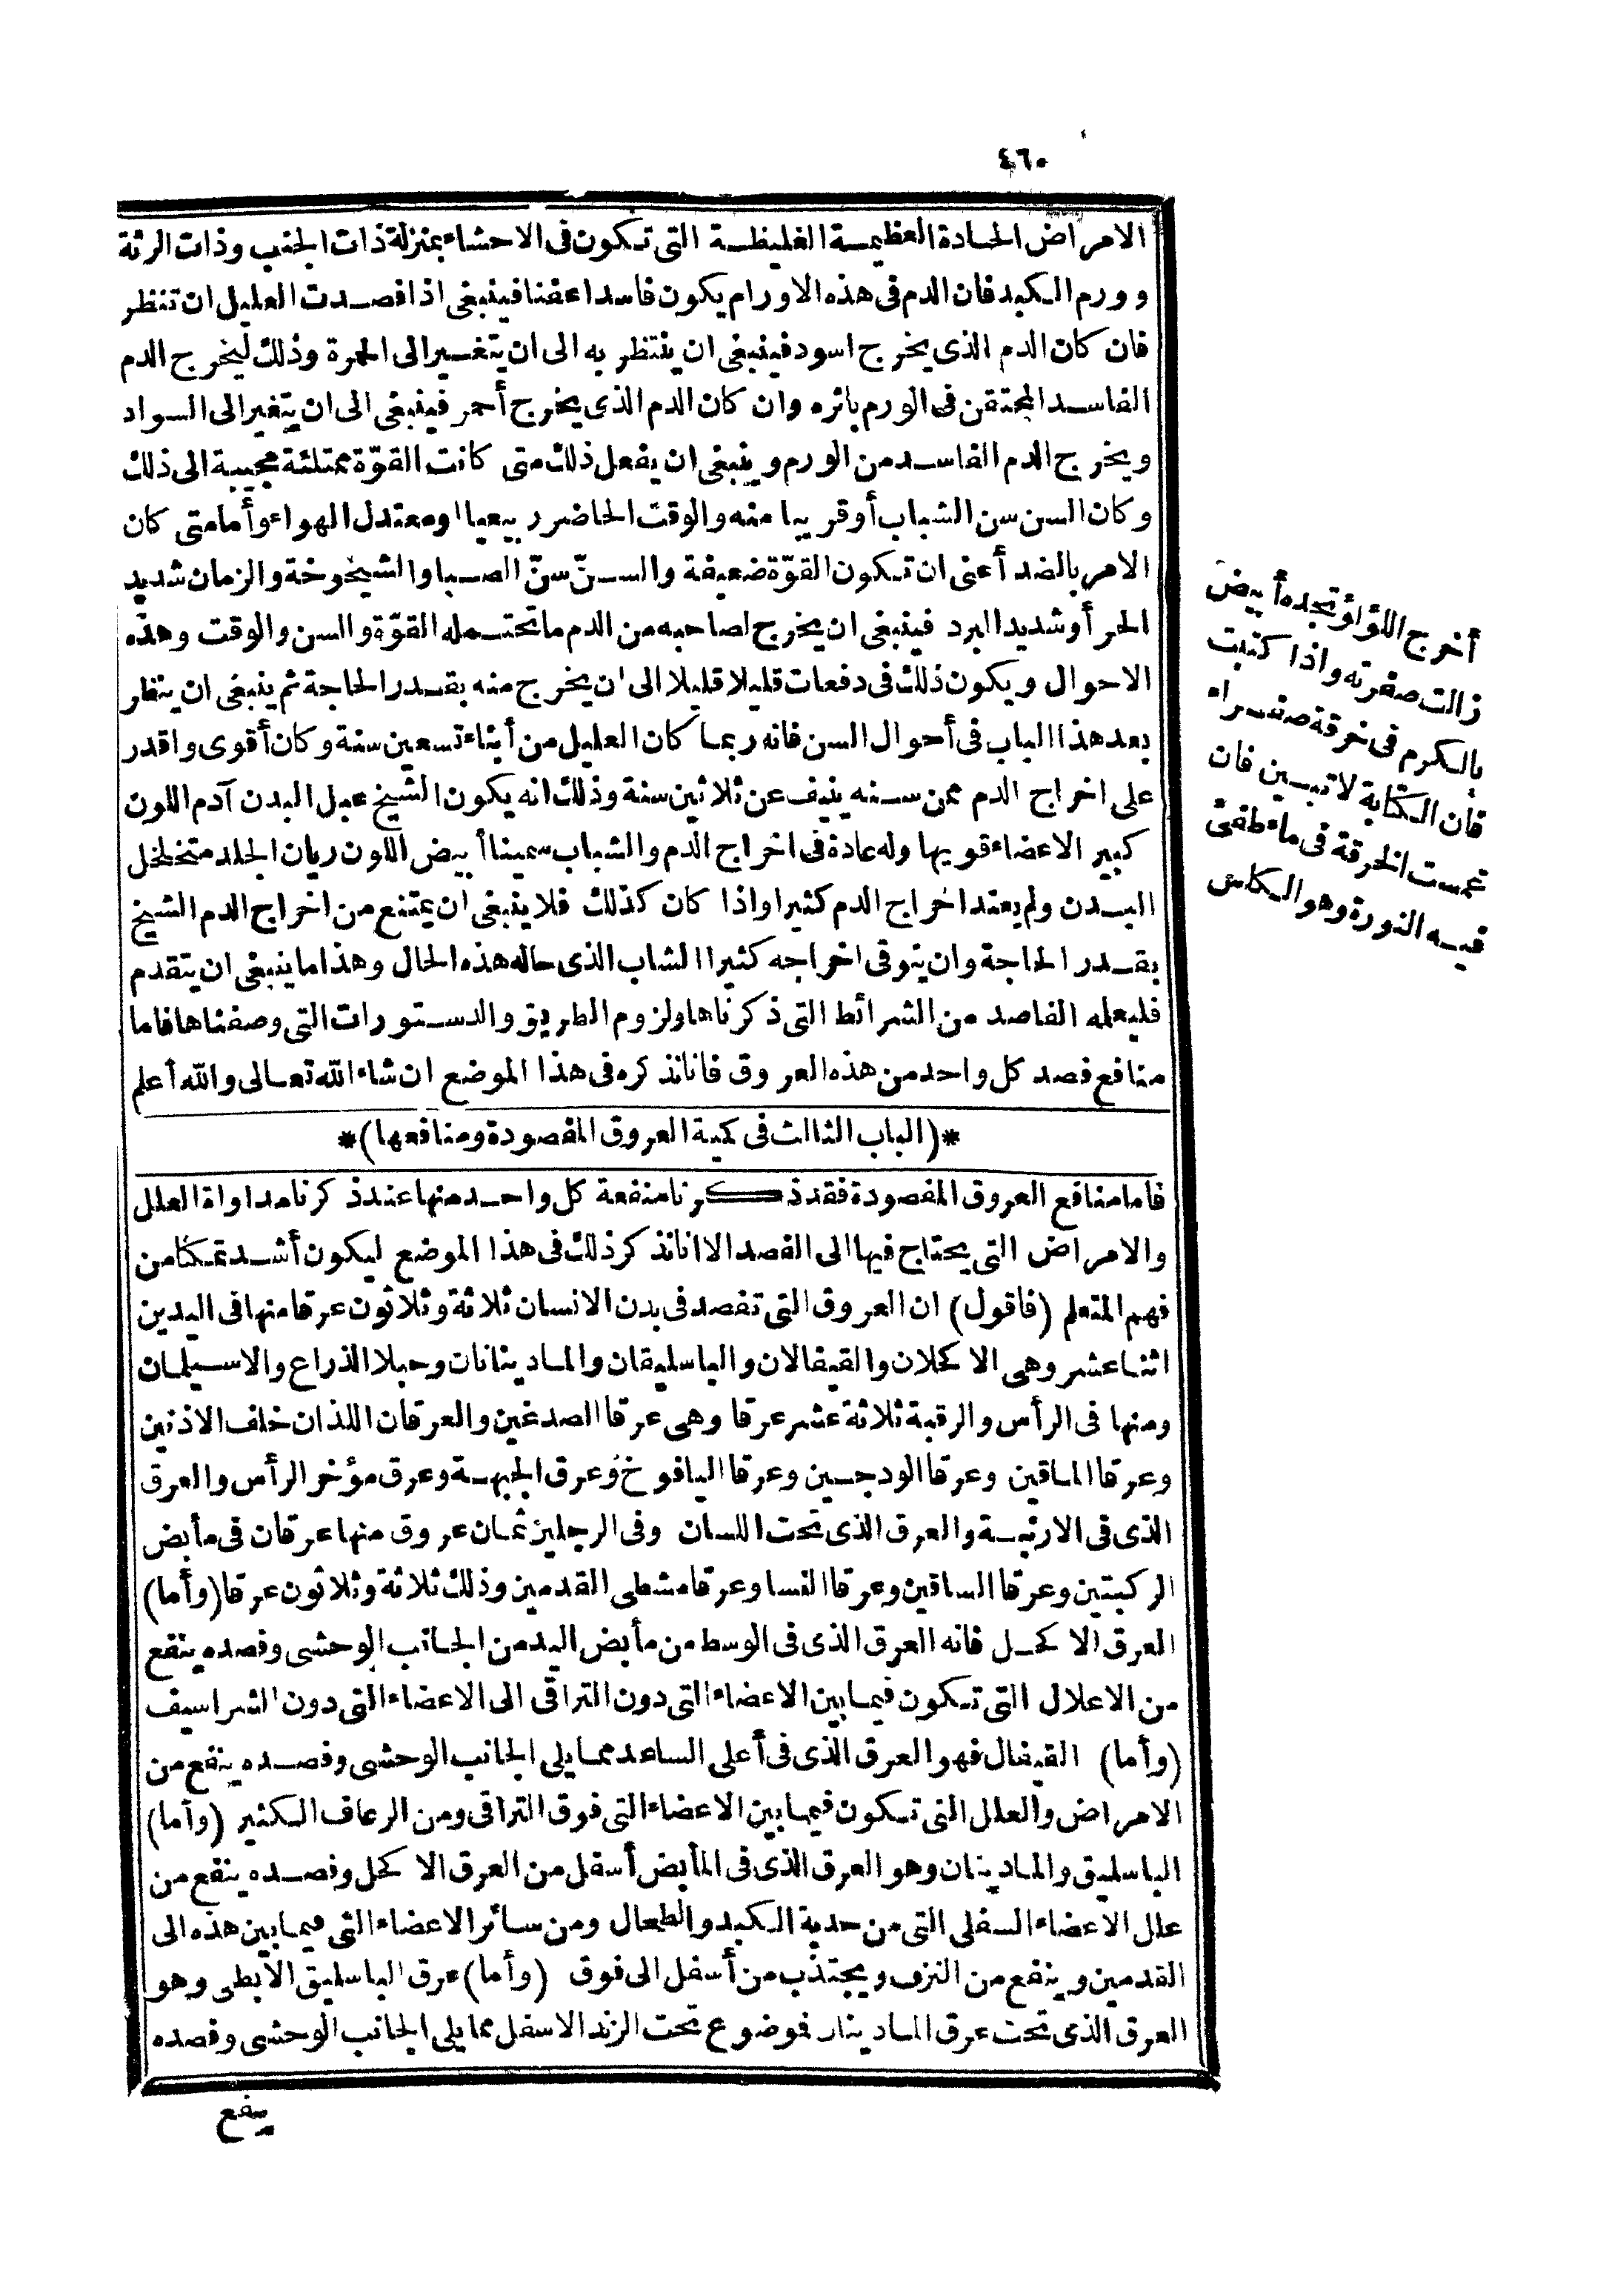 ٤٦٠
الامراض الحادة العظيمة الغليظة التى تكون فى الاحشاء بمنزلة ذات الجنب وذات الرئة
وورم الكبد فان الدم فى هذه الاورام يكون فاسدا عفنا فينبغى اذا فصدت العليل ان تنظر
فان كان الدم الذى يخرج اسود فينبغى ان ينتظر به الى ان يتغير الى الحمرة وذلك ليخرج الدم
الفاسد المحتقن فى الورم باثره وان كان الدم الذى يخرج أحمر فينبغى الى ان يتغير الى السواد
ويخرج الدم الفاسد من الورم وينبغى ان يفعل ذلك متى كانت القوّة ممتلئة مجيبة الى ذلك
وكان السن سن الشباب أو قريبا منه والوقت الحاضر ربيعيا او معتدل الهواء وأما متى كان
الامر بالضد أعنى ان تكون القوّة ضعيفة والسنّ سنّ الصبا والشيخوخة والزمان شديد
الحر أو شديد البرد فينبغى ان يخرج لصاحبه من الدم ما تحتمله القوّة والسن والوقت وهذه
الاحوال ويكون ذلك فى دفعات قليلا قليلا الى ان يخرج منه بقدر الحاجة ثم ينبغى ان ينظر
بعد هذا الباب فى أحوال السن فانه ربما كان العليل من أبناء تسعين سنة وكان أقوى واقدر
على اخراج الدم ممن سنه ينيف عن ثلاثين سنة وذلك انه يكون الشيخ عبل البدن آدم اللون
كبير الاعضاء قويها وله عادة فى اخراج الدم والشباب سمينا أبيض اللون ريان الجلد متخلخل
البدن ولم يعتد اخراج الدم كثيرا واذا كان كذلك فلا ينبغى ان يمتنع من اخراج الدم الشيخ
بقدر الحاجة وان يتوقى اخراجه كثيرا الشاب الذى حاله هذه الحال وهذا ما ينبغى ان يتقدم
فليعمله الفاصد من الشرائط التى ذكرناها ولزوم الطريق والدستورات التى وصفناها فاما
منافع فصد كل واحد من هذه العروق فانا نذكره فى هذا الموضع ان شاء الله تعالى والله أعلم
*(الباب الثالث فى كمية العروق المفصودة ومنافعها)*
فاما منافع العروق المفصودة فقد ذكرنا منفعة كل واحد منها عند ذكرنا مداواة العلل
والامراض التى يحتاج فيها الى الفصد الا انا نذكر ذلك فى هذا الموضع ليكون أشد تمكنا من
فهم المتعلم (فاقول) ان العروق التى تفصد فى بدن الانسان ثلاثة وثلاثون عرقا منها فى اليدين
اثنا عشر وهى الاكحلان والقيفالان والباسليقان والماديانات وحبلا الذراع والاسيلمان
ومنها فى الرأس والرقبة ثلاثة عشر عرقا وهى عرقا الصدغين والعرقان اللذان خلف الاذنين
وعرقا الماقين وعرقا الودجين وعرقا اليافوخ وعرق الجبهة وعرق مؤخر الرأس والعرق
الذى فى الارنبة والعرق الذى تحت اللسان وفى الرجلين ثمان عروق منها عرقان فى مأبض
الركبتين وعرقا الساقين وعرقا النسا وعرقا مشطى القدمين وذلك ثلاثة وثلاثون عرقا (وأما)
العرق الاكحل فانه العرق الذى فى الوسط من مأبض اليد من الجانب الوحشى وفصده ينفع
من الاعلال التى تكون فيما بين الاعضاء التى دون التراقى الى الاعضاء التى دون الشراسيف
(وأما) القيفال فهو العرق الذى فى أعلى الساعد مما يلى الجانب الوحشى وفصده ينفع من
الامراض والعلل التى تكون فيما بين الاعضاء التى فوق التراقى ومن الرعاف الكثير (وأما)
الباسليق والماديان وهو العرق الذى فى المأبض أسفل من العرق الاكحل وفصده ينفع من
علل الاعضاء السفلى التى من حدبة الكبد والطحال ومن سائر الاعضاء التى فيما بين هذه الى
القدمين وينفع من النزف ويجتذب من أسفل الى فوق (وأما) عرق الباسليق الابطى وهو
العرق الذى تحت عرق الماديان فموضوع تحت الزند الاسفل مما يلى الجانب الوحشى وفصده
ينفع
أخرج اللؤلؤ تجده أبيض
زالت صفرته واذا كتبت
بالكرم فى خرقة صفراء
فان الكتابة لا تبين فان
غمست الخرقة فى ماء طفئ
فيه النورة وهو الكلس